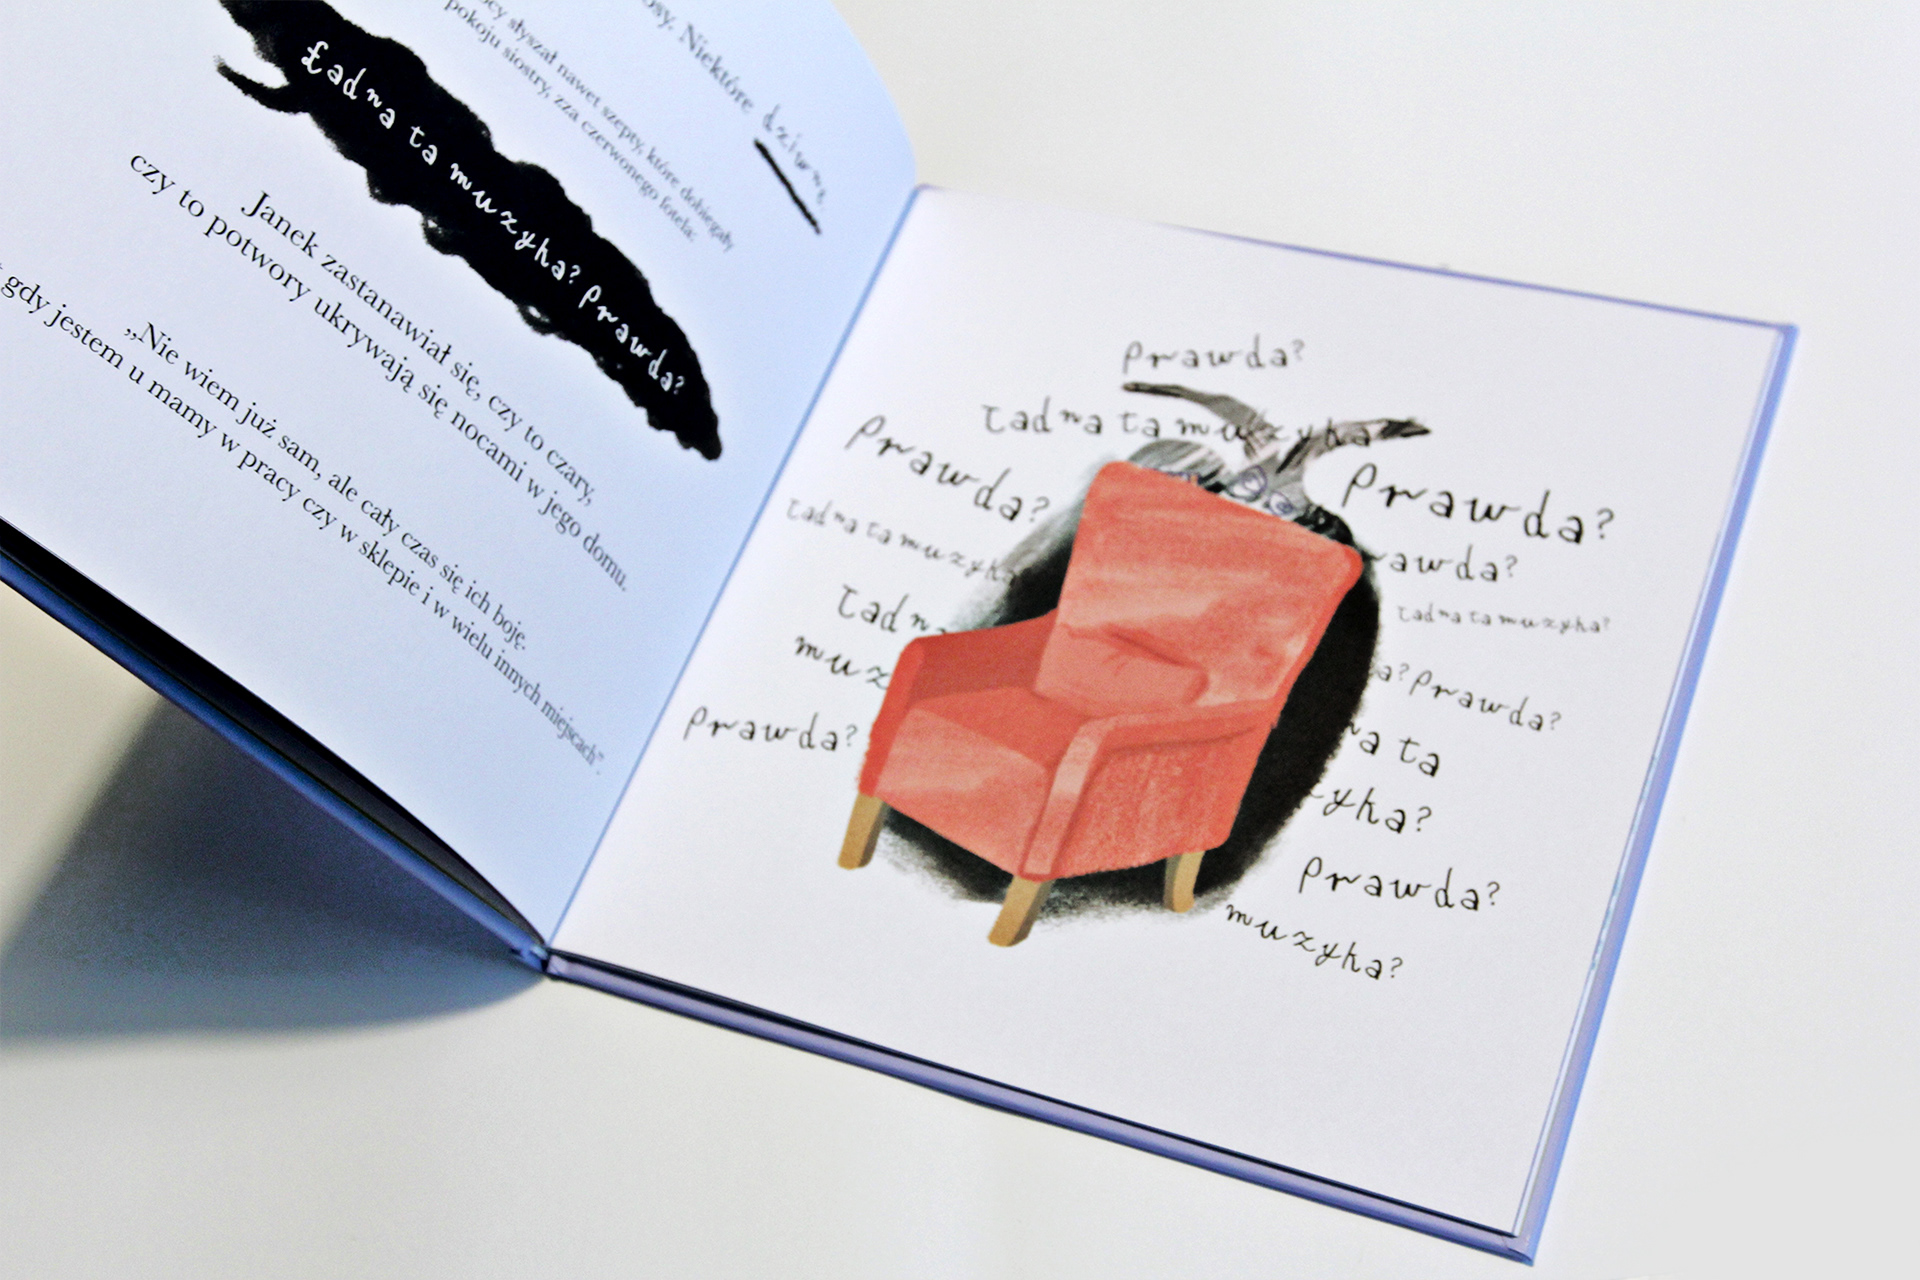 Niektóre dziwne
słyszał nawet szepty, które dobiegały
pokoju siostry, zza czerwonego fotela:
Ładna ta muzyka? Prawda?
Janek zastanawiał się, czy to czary,
czy to potwory ukrywają się nocami w jego domu.
„Nie wiem już sam, ale cały czas się ich boję.
gdy jestem u mamy w pracy czy w sklepie i w wielu innych miejscach”.
Prawda?
Ładna ta muzyka
Prawda?
Prawda?
Ładna ta muzyka
awda?
Ładna
Ładna ta muzyka?
muz
a? Prawda?
Prawda?
a ta
yka?
Prawda?
muzyka?